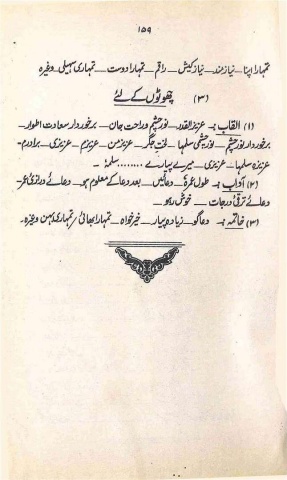 ۱۵۹
تمہارا اپنا ــ نیاز مند ــ نیاز کیش ــ راقم ــ تمہارا دوست ــ تمہاری سہیلی وغیرہ
(۳) چھوٹوں کے لئے
(۱) القاب :ــ عزیز القدر ــ نور چشم و راحت جان ــ برخوردار سعادت اطوار ــ
برخوردار نور چشم ــ نور چشمی سلمہا ــ لخت جگر ــ عزیز من ــ عزیزم ــ عزیزی ــ برادرم ــ
عزیزہ سلمہا ــ عزیزی ــ میرے پیارے ...... سلمہٗ ــ
(۲) آداب :ــ طول عمرہٗ ــ دعائیں ــ بعد دعا کے معلوم ہو ــ دعائے درازی عمر
دعائے ترقی درجات ــ خوش رہو ــ
(۳) خاتمہ :ــ دعا گو ــ زیادہ پیار ــ خیر خواہ ــ تمہارا بھائی / تمہاری بہن وغیرہ ــ